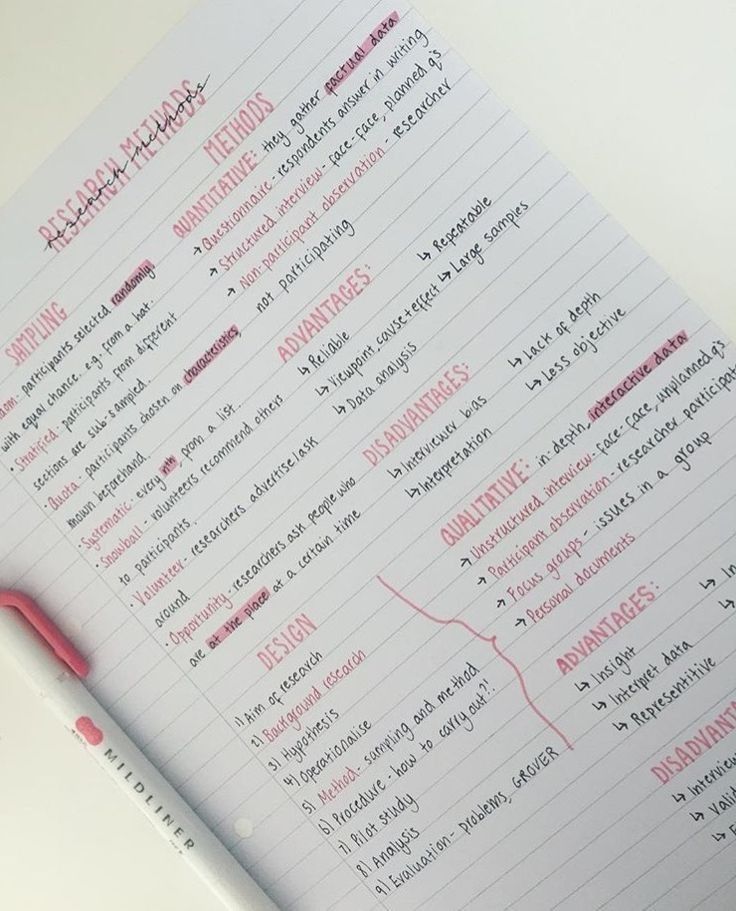 RESEARCH METHODS
research methods
SAMPLING
participants selected randomly
with equal chance.. e.g. from a hat.
• Stratified - participants from different
sections are sub-sampled.
• Quota - participants chosen on characteristics,
known beforehand.
• Systematic - every nth from a list.
• Snowball - volunteers recommend others
to participants.
• Volunteer - researchers advertise/ask
around
• Opportunity - researchers ask people who
are at the place at a certain time
DESIGN
1) Aim of research
2) Background research
3) Hypothesis
4) Operationalise
5) Method - sampling and method
6) Procedure - how to carry out?!
7) Pilot study
8) Analysis
9) Evaluation - problems, GROVER
METHODS
QUANTITATIVE: they gather factual data
→ Questionnaire - respondents answer in writing
→ Structured interview - face-face, planned q's
→ Non-participant observation - researcher
not participating
ADVANTAGES:
↳ Reliable
↳ Viewpoint, cause+effect
↳ Data analysis
↳ Repeatable
↳ Large samples
DISADVANTAGES:
↳ Interviewer bias
↳ Interpretation
↳ Lack of depth
↳ Less objective
QUALITATIVE: in-depth, interactive data
→ Unstructured interview - face-face, unplanned q's
→ Participant observation - researcher
→ Focus groups - issues in a group
→ Personal documents
ADVANTAGES:
↳ Insight
↳ Interpret data
↳ Representitive
MILDLINER